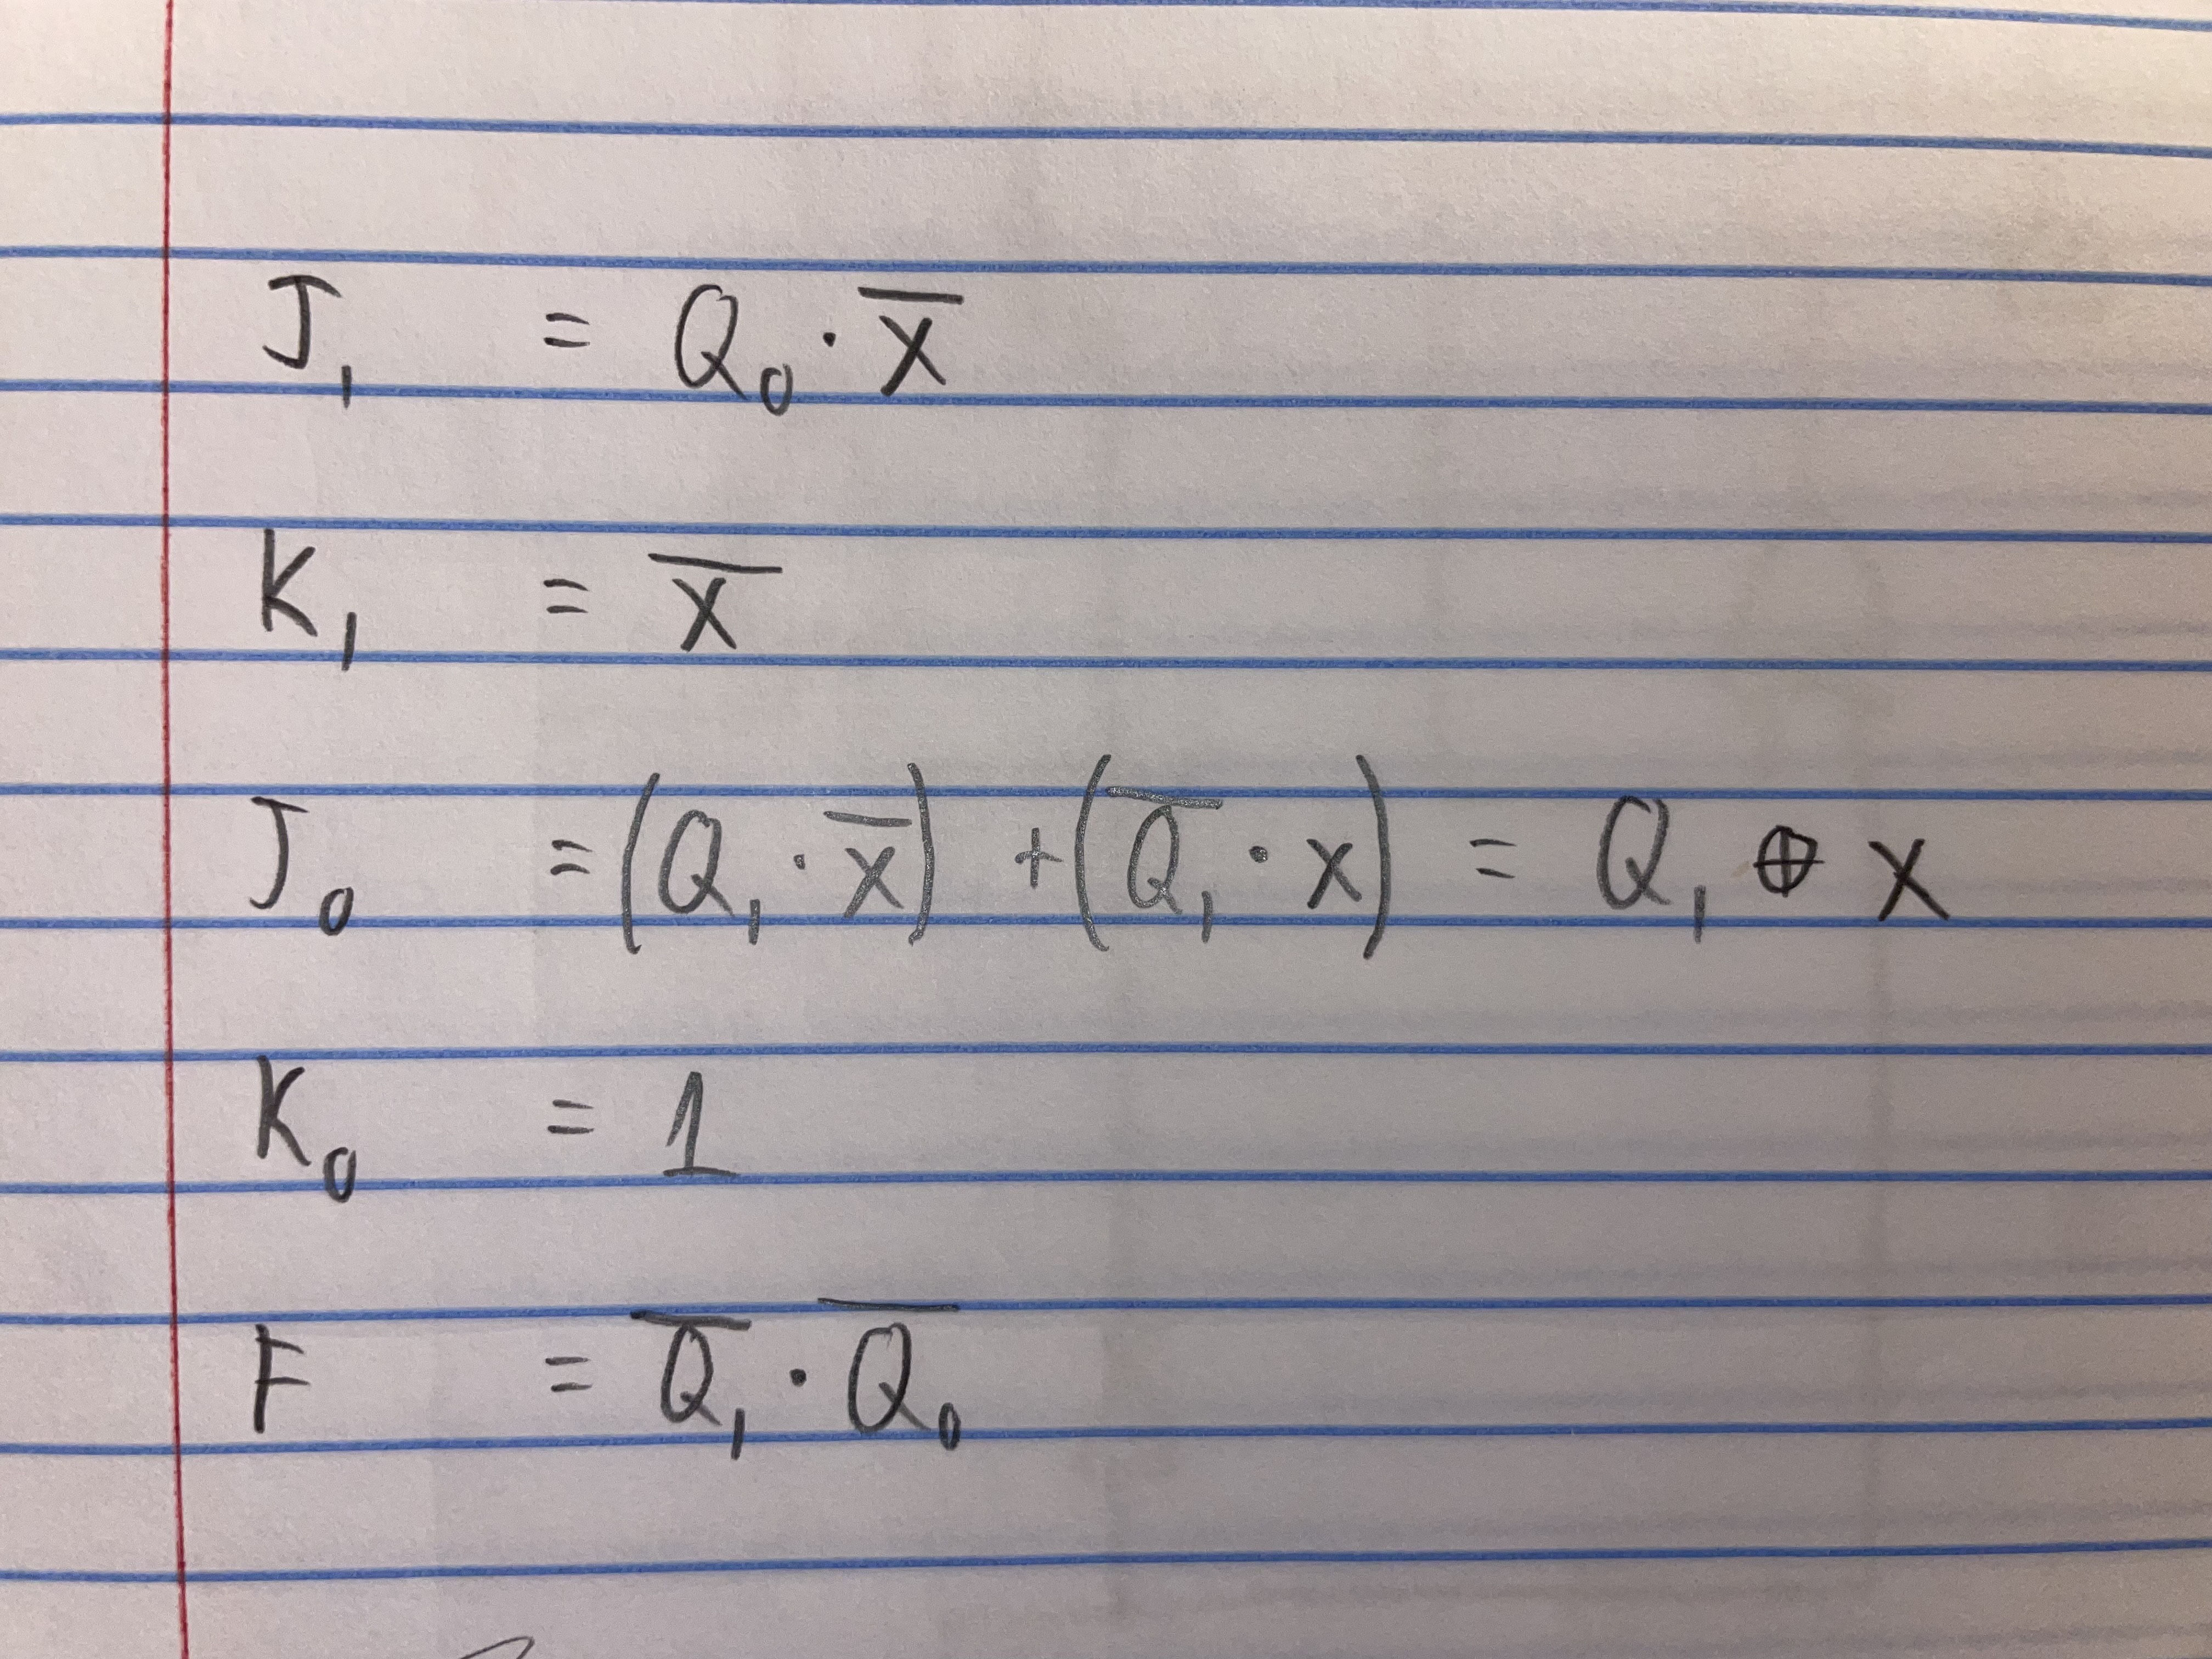 J₁ = Q₀ · x̅
K₁ = x̅
J₀ = (Q₁ · x̅) + (Q̅₁ · x) = Q₁ ⊕ x
K₀ = 1
F = Q̅₁ · Q̅₀